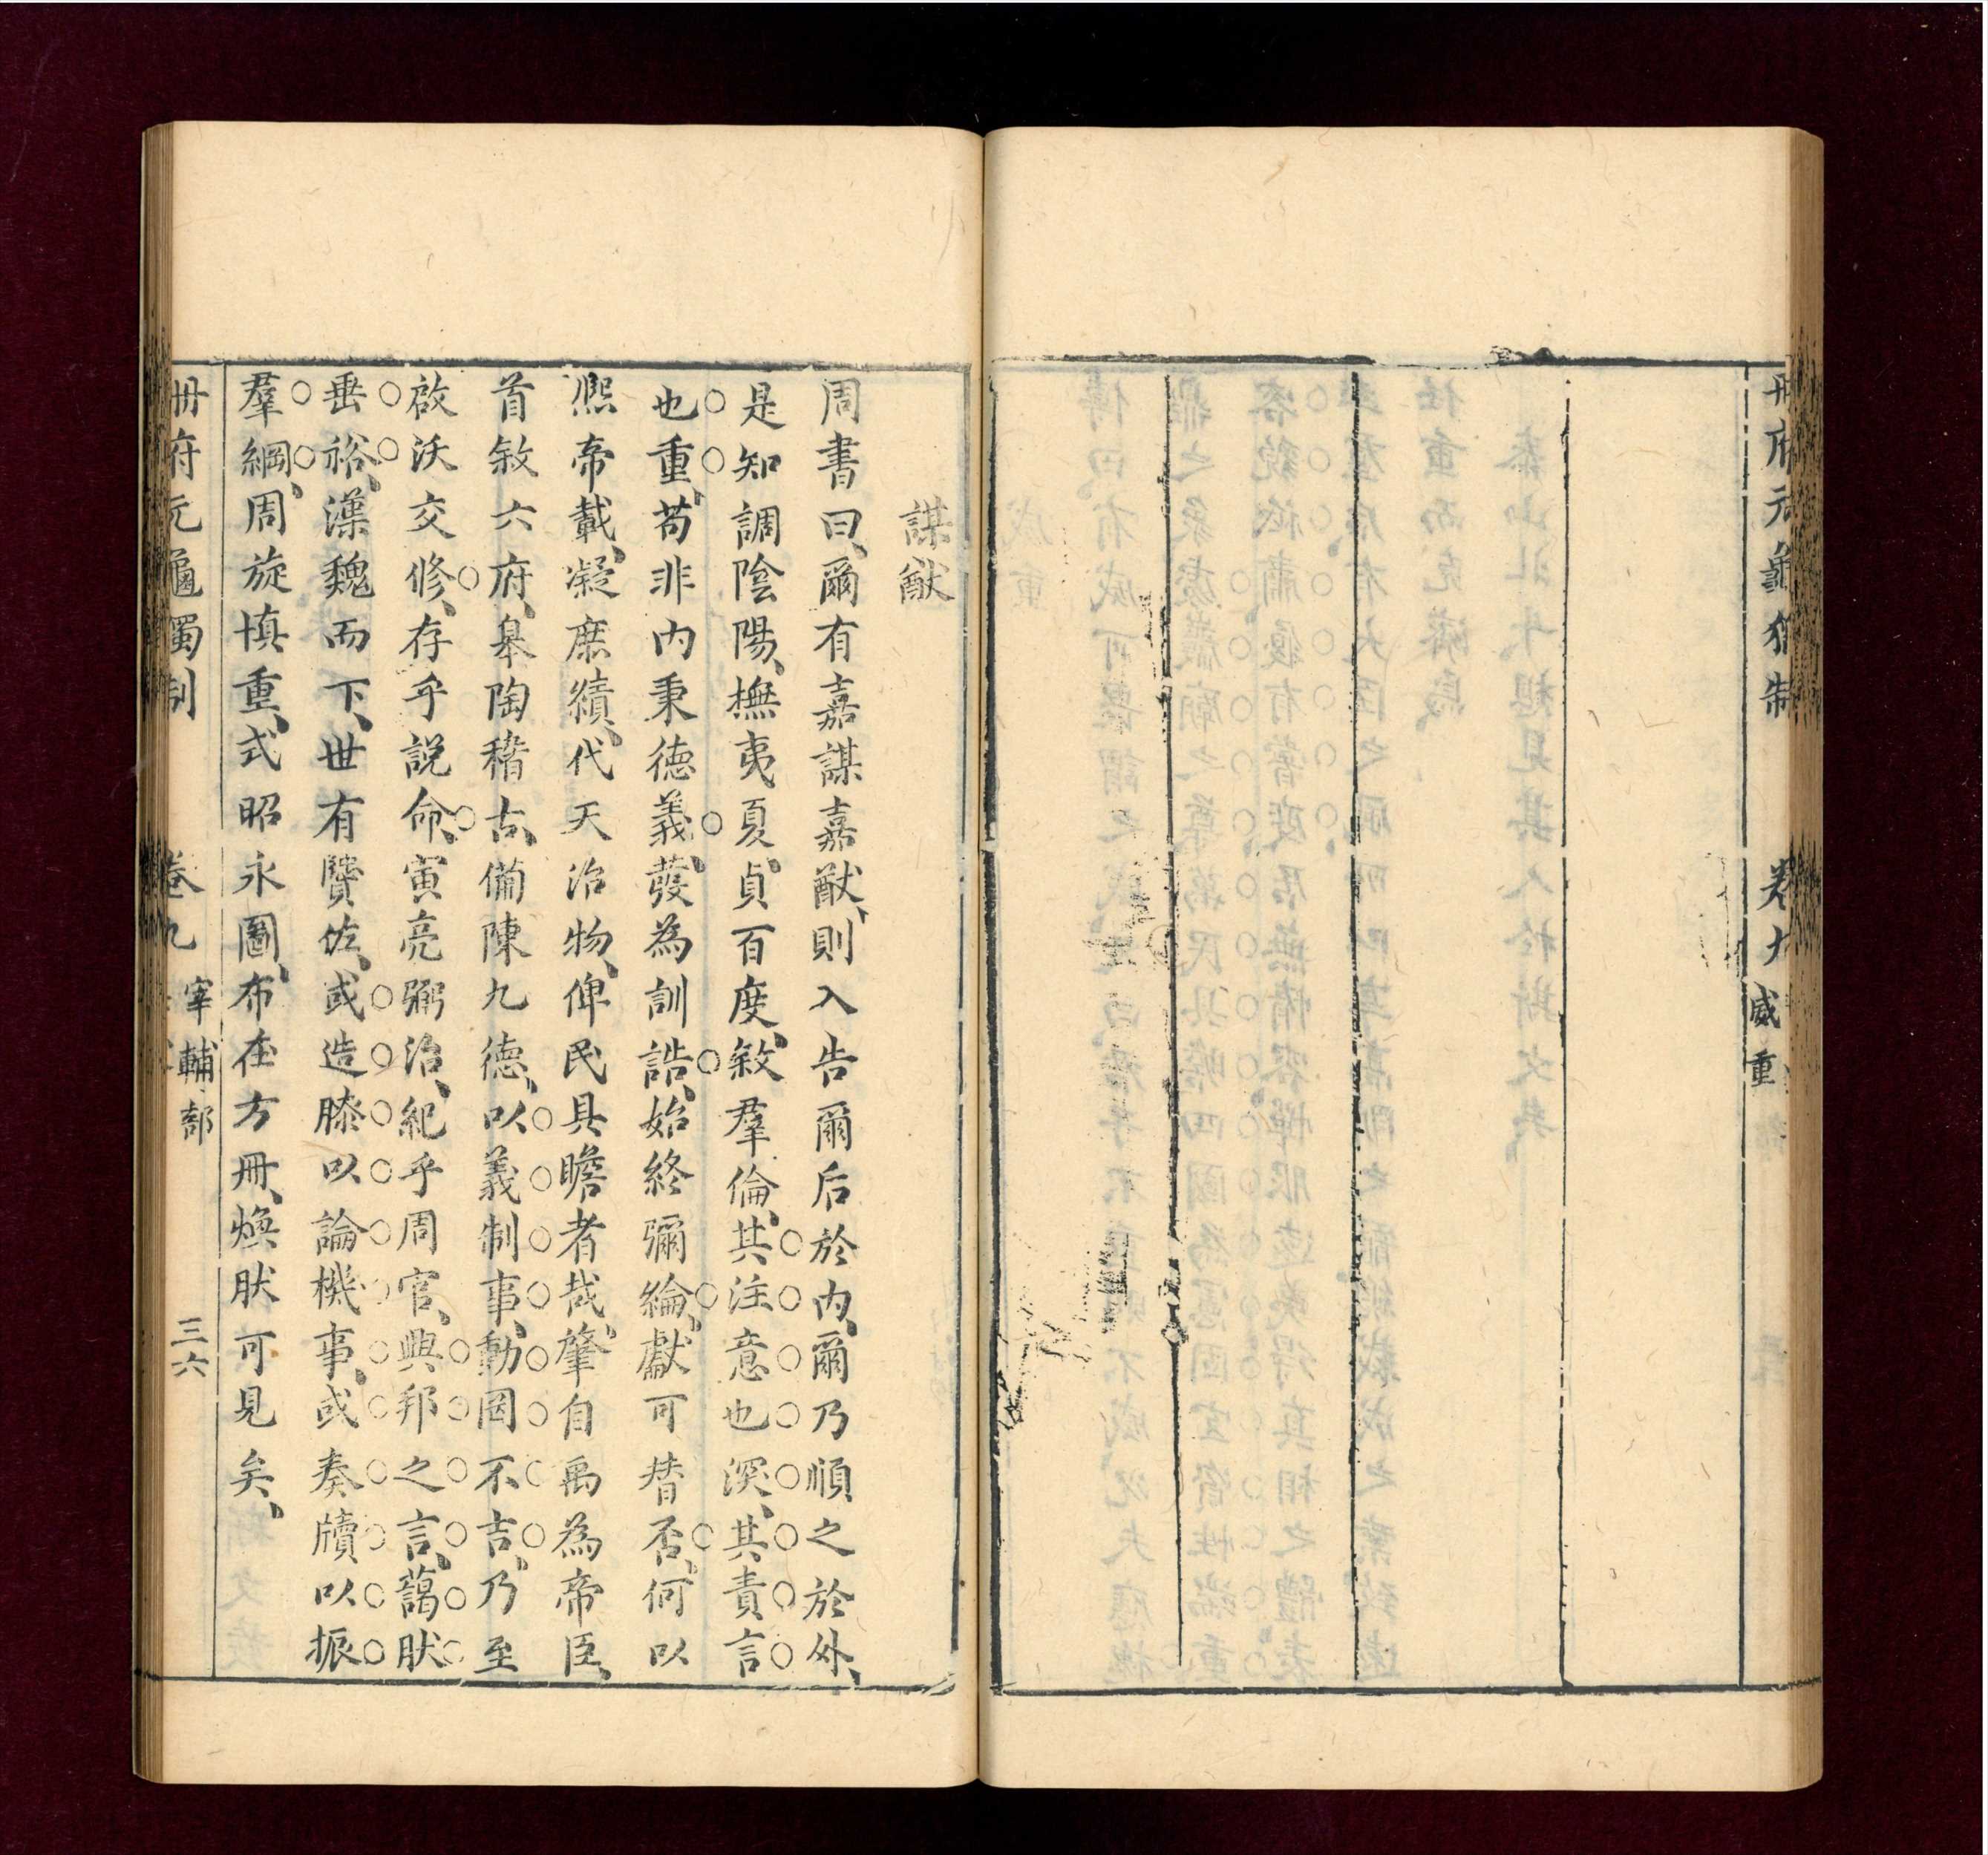 冊府元龜獨制　卷九　威重
謀猷
周書曰、爾有嘉謀嘉猷、則入告爾后於內、爾乃順之於外、
是知調陰陽、撫夷夏、貞百度、敘羣倫、其注意也深、其責言
也重、苟非內秉德義、發為訓誥、始終彌綸、獻可替否、何以
熈帝載、凝庶績、代天治物、俾民具瞻者哉、肇自禹為帝臣、
首敘六府、皋陶稽古、備陳九德、以義制事、動罔不吉、乃至
啟沃交修、存乎說命、寅亮弼治、紀乎周官、興邦之言、藹肰
垂裕、漢魏而下、世有贊佐、或造膝以論機事、或奏牘以振
羣綱、周旋慎重、式昭永圖、布在方冊、煥肰可見矣、
冊府元龜獨制　卷九　宰輔部　三六